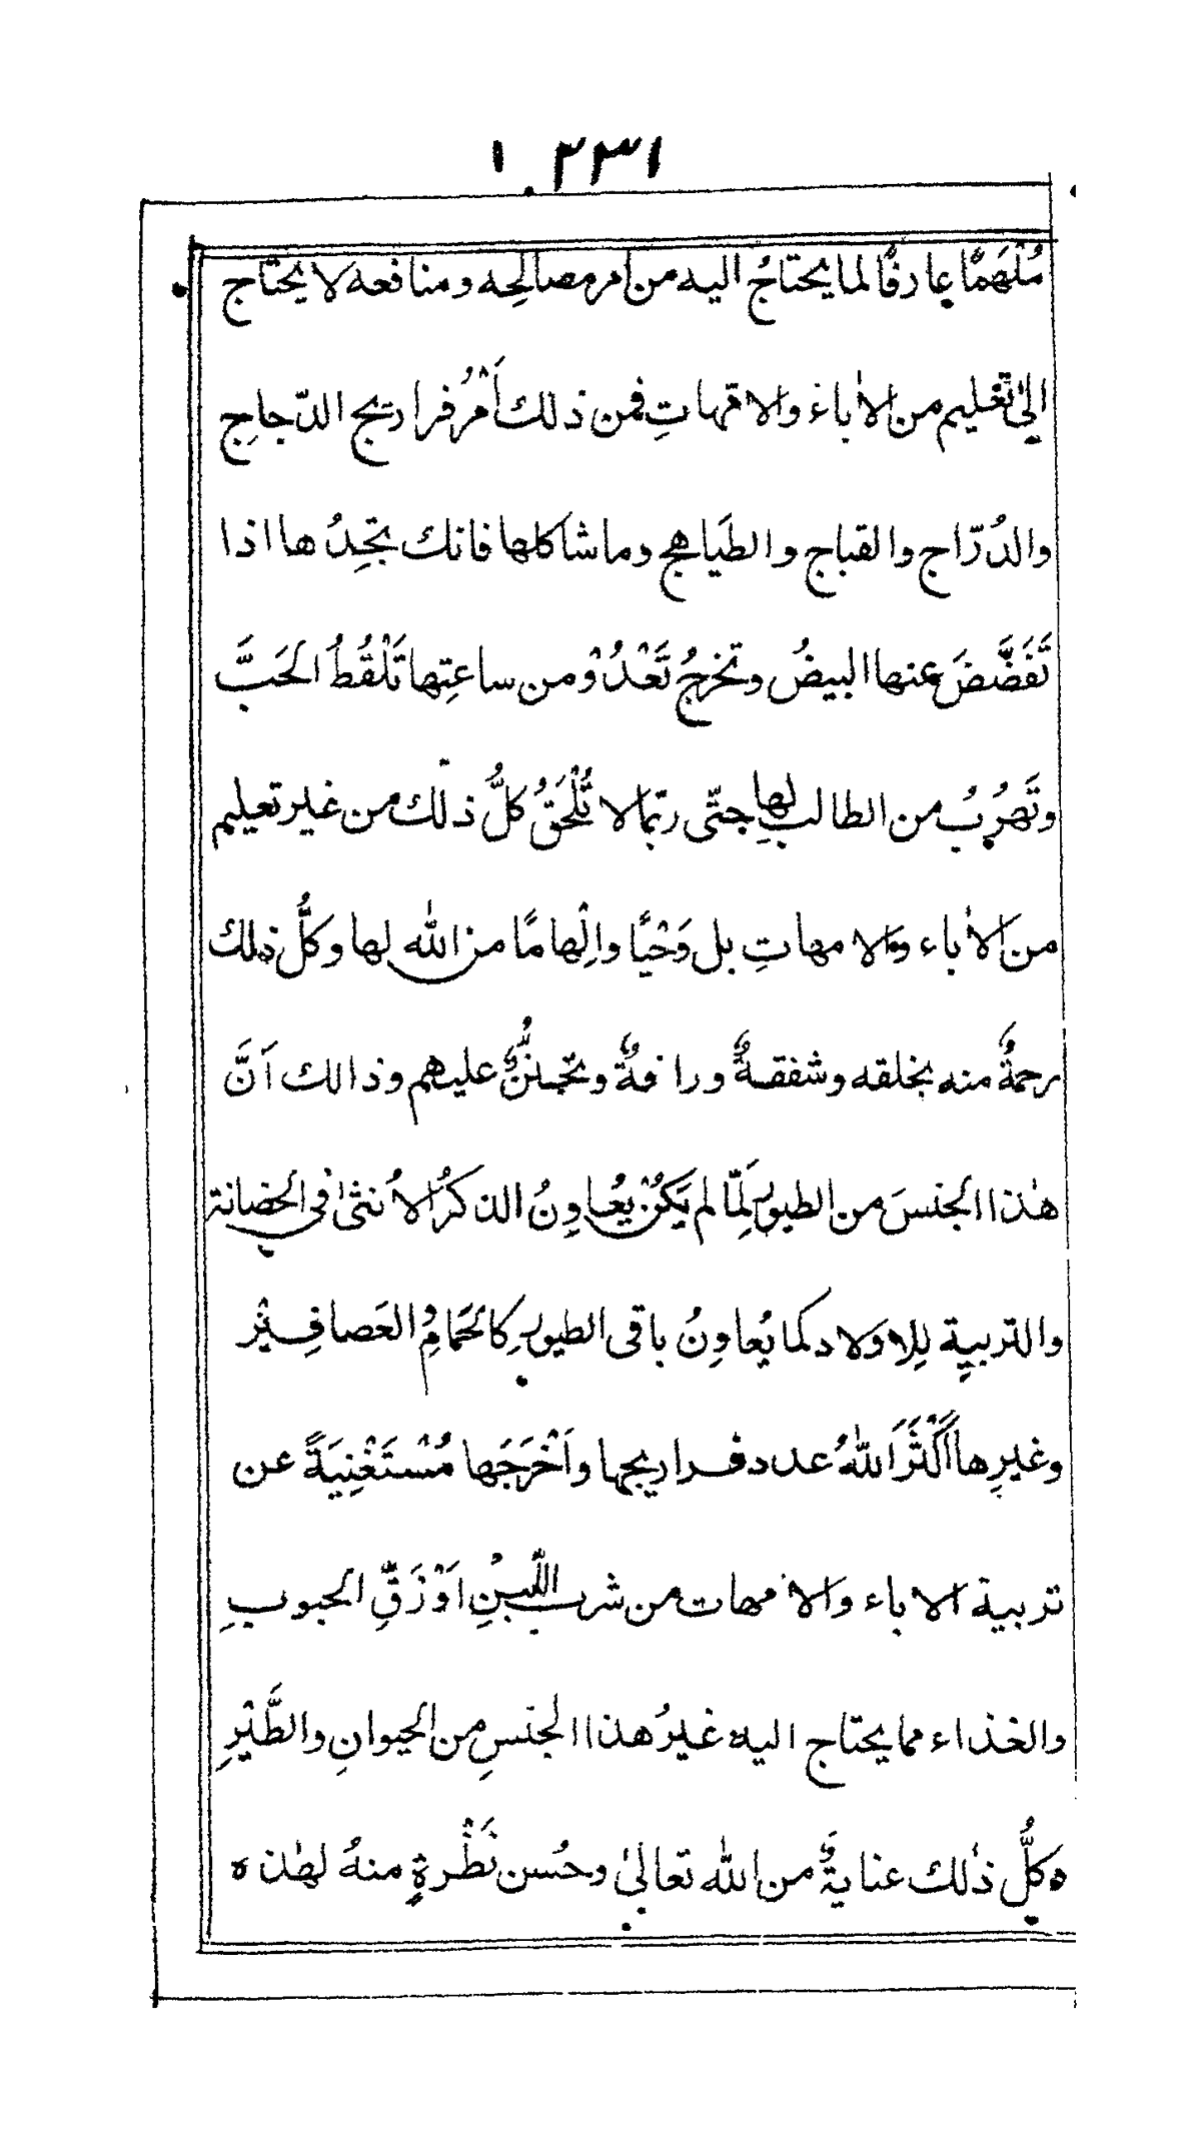 ١٣٣٠١
مُلْهَمًا عارفًا لما يحتاجُ اليه من امر مصالحِه ومنافعه لا يحتاج
الىٰ تَعْليم من الاٰباءَ والامّهاتِ فمن ذلك أَمْرُ فراريج الدّجاجِ
والدُرّاج والقباج والطَيَاهج وما شاكلها فانك تجِدُها اذا
تَفَضَّضَ عنها البيضُ وتخرجُ تَعْدُوْ من ساعتِها تَلْقُطُ الحَبَّ
وتَهرُبُ من الطالب لها حتّى ربّما لا تُلْحَقُ كلُّ ذلك من غير تعليم
من الاٰباء والامهاتِ بل وَحْيًا وإِلْهامًا من اللّٰه لها وكلُّ ذلك
رحمةٌ منه بخلقه وشفقةٌ ورافةٌ وتحننٌ عليهم وذالك اَنَّ
هٰذا الجنسَ من الطيورِ لَمّا لم يَكُنْ يُعاوِنُ الذكرُ الاُنثىٰ فى الحضانة
والتربيةِ لِلاوَلاد كما يُعاوِنُ باقى الطيورِ كالحَمَامِ والعَصافِيْرِ
وغيرِها أَكْثَرَ اللّٰهُ عدد فراريجها واَخْرَجَها مُسْتَغْنِيَةً عن
تربية الاباء والامهات من شرب اللّبنِ اَوْ زَقِّ الحبوبِ
والغذاء مما يحتاج اليه غيرُ هذا الجنسِ من الحيوانِ والطَّيْرِ
ه كلُّ ذٰلك عنايةٌ من اللّٰه تعالىٰ وحُسن نَظْرةٍ منهُ لهٰذه